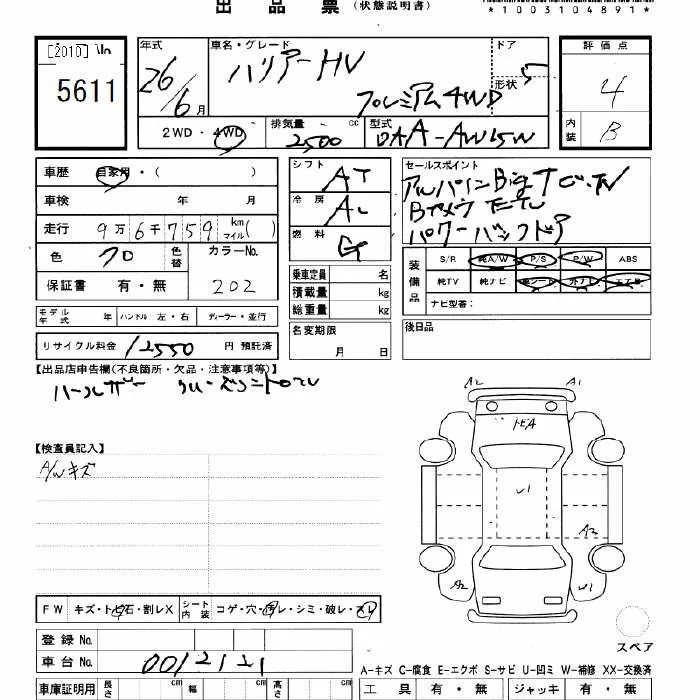 出品票 (状態説明書)
*1003104891*
[2010]
5611
年式 26/6月
車名・グレード ハリアーHV
プレミアム4WD
ドア 5
形状
評価点 4
内装 B
2WD・4WD
排気量 2500 cc
型式 DAA-AVU65W
車歴 自家用・( )
車検 年 月
走行 9万6千759 km マイル ( )
色 クロ 色替
カラーNo. 202
保証書 有・無
シフト AT
冷房 AC
燃料 G
乗車定員 名
積載量 kg
総重量 kg
名変期限 月 日
セールスポイント
アルパインBigナビTV
Bカメラ
パワーバックドア
装備品
S/R 純A/W P/S P/W ABS
純TV 純ナビ 革シート 外ナビ エアB
ナビ型番:
後日品
モデル年式 年 ハンドル 左・右 ディーラー・並行
リサイクル料金 12550 円 預託済
【出品店申告欄(不良箇所・欠品・注意事項等)】
ハーフレザー
【検査員記入】
A/Wキズ
A2 A1
トビA
W1
A2
A2 W1
スペア
FW キズ・トビ石・割レX シート内装 コゲ・穴・切レ・シミ・破レ・スレ
登録No.
車台No. 0012121
車庫証明用 長さ cm 幅 cm 高さ cm
A-キズ C-腐食 E-エクボ S-サビ U-凹ミ W-補修 XX-交換済
工具 有・無 ジャッキ 有・無